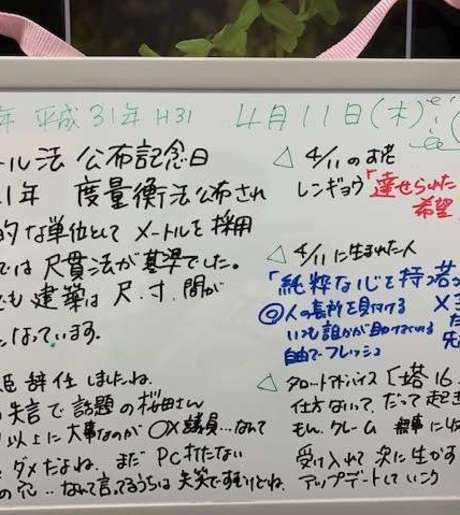 年 平成31年 H31 4月11日(木)
トル法 公布記念日
1年 度量衡法公布され
的な単位として メートルを採用
では 尺貫法が基準でした。
でも 建築は 尺.寸.間が
になっています。
辞任しましたね.
失言で話題の桜田さん
以上に大事なのが 〇×議員…なんて
ダメだよね. まだ PC打たない
の穴…なんて言ってるうちは 失笑ですむけどね.
△ 4/11のお花
レンギョウ「達せられた
希望
△ 4/11に生まれた人
「純粋な心を持つ若
◎人の長所を見付ける
いつも誰かが助けてくれている
自由でフレッシュ
△ タロットアドバイス [塔16.
仕方ないって. だって起き
もん. クレーム
受け入れて 次に生かす
アップデートしていこう